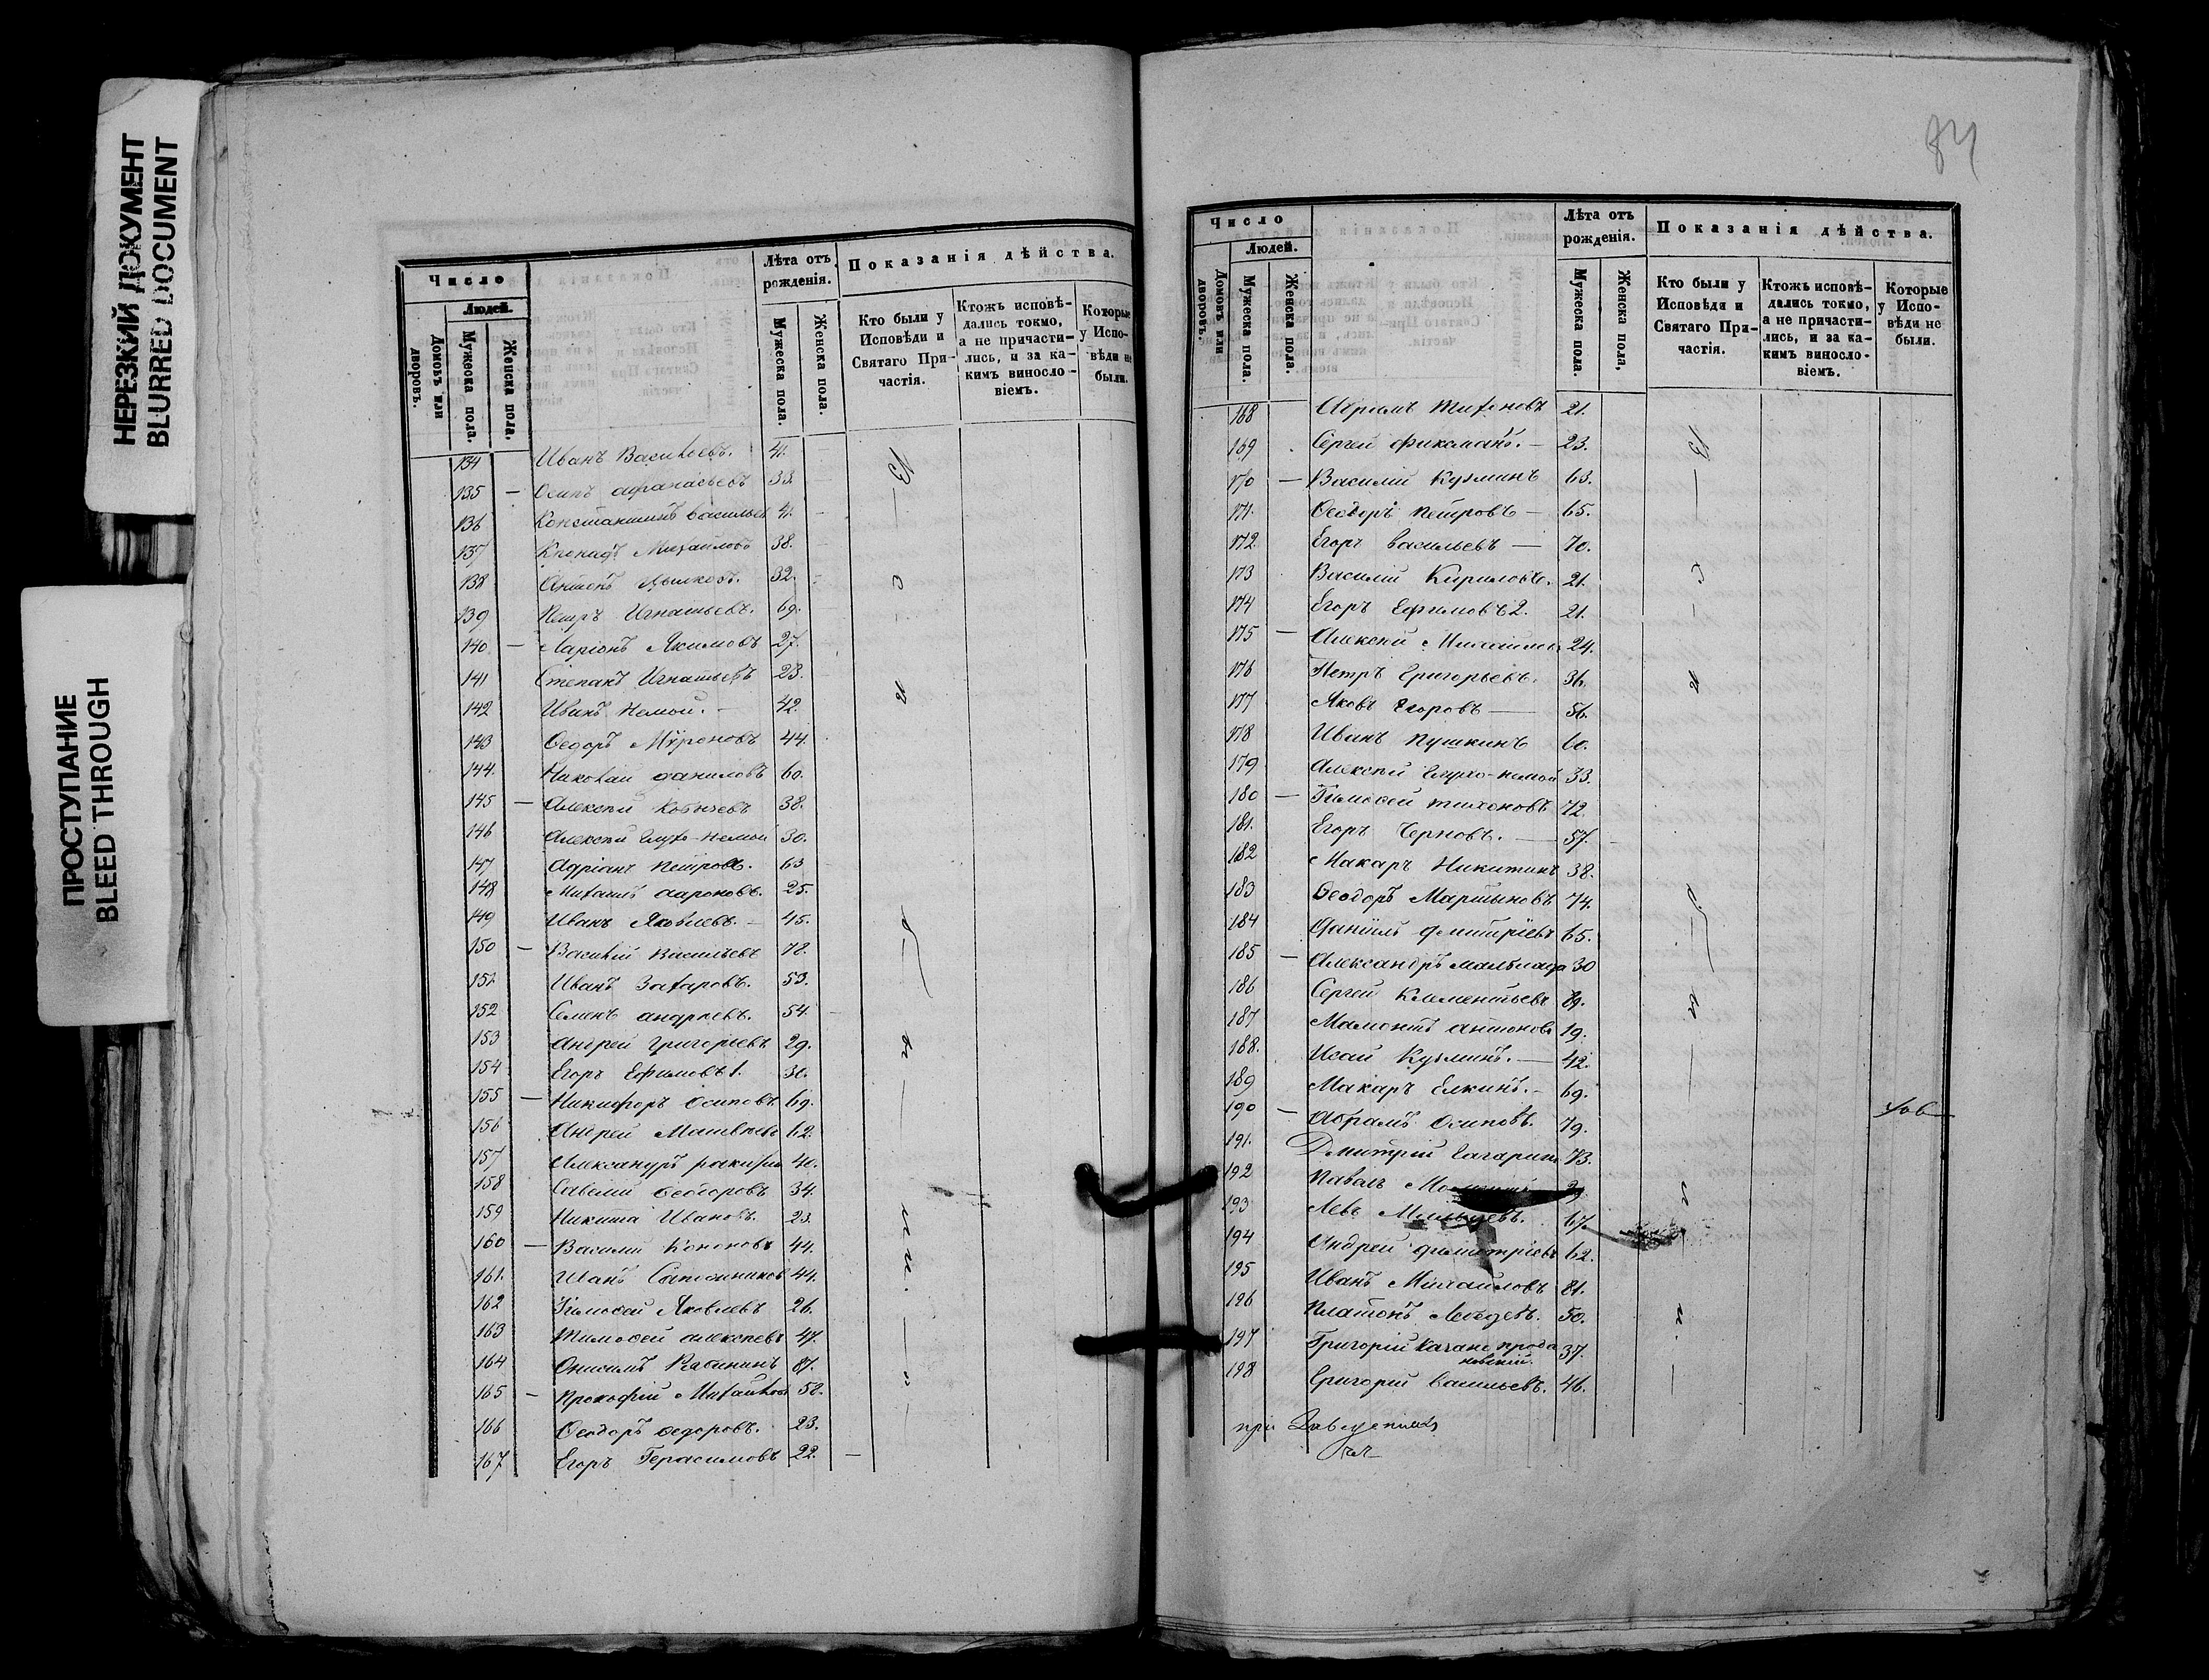 НЕРЕЗКИЙ ДОКУМЕНТ
BLURRED DOCUMENT
ПРОСТУПАНИЕ
BLEED THROUGH
Число
Людей.
Домовъ или дворовъ.
Мужеска пола.
Женска пола.
Лѣта отъ рожденія.
Мужеска пола.
Женска пола.
Показанія дѣйства.
Кто были у Исповѣди и Святаго Причастія.
Ктожъ исповѣдались токмо, а не причастились, и за какимъ винословіемъ.
Которые у Исповѣди не были.
134 Иванъ Васильевъ. 41.
135 — Осипъ Афанасьевъ 33.
136 Константинъ Васильев 41.
137 Михайловъ 38.
138 Антонъ 32.
139 Петръ Игнатьевъ. 69.
140 — Ларіонъ Якимовъ 27.
141 Степанъ Игнатьевъ 23.
142 Иванъ Немой. — 42.
143 Ѳедоръ Мѵроновъ 44.
144. Николай Даниловъ 60.
145 — Алексѣй 38.
146 Алексѣй Глухо-Немой 30.
147 Адріанъ Петровъ. 63
148 Михаилъ Аароновъ. 25.
149 Иванъ Яковлевъ. — 45.
150 — Василій Васильевъ 78.
151 Иванъ Захаровъ. 53.
152 Семенъ Андреевъ. 54.
153 Андрей Григорьевъ 29.
154 Егоръ Ефимовъ 1. 30.
155 — Никифоръ Осиповъ 69.
156 Андрей Матвѣевъ 62.
157 Александръ 40.
158 Савелій Ѳедоровъ 34.
159 Никита Ивановъ. 23.
160 — Василій Кононовъ 44.
161. Иванъ Сапожников 44.
162 Тимоѳей Яковлевъ 26.
163 Тимоѳей Алексѣевъ 47.
164 Онисимъ 81.
165 — Прокофій Михайлов 52.
166 Ѳеодоръ Ѳедоровъ. 23.
167 Егоръ Герасимовъ 22. —
84
Число
Людей.
Домовъ или дворовъ.
Мужеска пола.
Женска пола.
Лѣта отъ рожденія.
Мужеска пола.
Женска пола,
Показанія дѣйства.
Кто были у Исповѣди и Святаго Причастія.
Ктожъ исповѣдались токмо, а не причастились, и за какимъ винословіемъ.
Которые у Исповѣди не были.
168 Абрамъ Тихоновъ 21.
169 Сергей Фиксманъ. — 23.
170 — Василій Кузминъ 63.
171. Ѳеодоръ Петровъ — 65.
172. Егоръ Васильевъ — 70.
173 Василій Кириловъ. 21.
174 Егоръ Ефимовъ 2. 21.
175 — Алексѣй Михайлов 24.
176 Петръ Григорьевъ. 36.
177 Яковъ Егоровъ — 56.
178 Иванъ Пушкинъ 60.
179 Алексѣй Глухо-немой 33.
180 — Тимоѳей Тихоновъ 72.
181. Егоръ Черновъ. — 57.
182 Макаръ Никитинъ 38.
183 Ѳеодоръ Мартыновъ 74.
184 Даніилъ Дмитріевъ 65.
185 — Александръ 30
186 Сергей Клементьевъ 69.
187 Мамонтъ Антоновъ 19.
188. Исай Кузминъ. — 42.
189 Макаръ Елкинъ. — 69.
190 — Абрамъ Осиповъ. 79.
191. Дмитрій Гагаринъ 73.
192 Павелъ
193 Левъ 67.
194 Андрей Дмитріевъ 62.
195 Иванъ Михайловъ 81.
196 Платонъ Лебедевъ. 50.
197 Григорій 37.
198 Григорій Васильевъ. 46.
при Заведеніяхъ